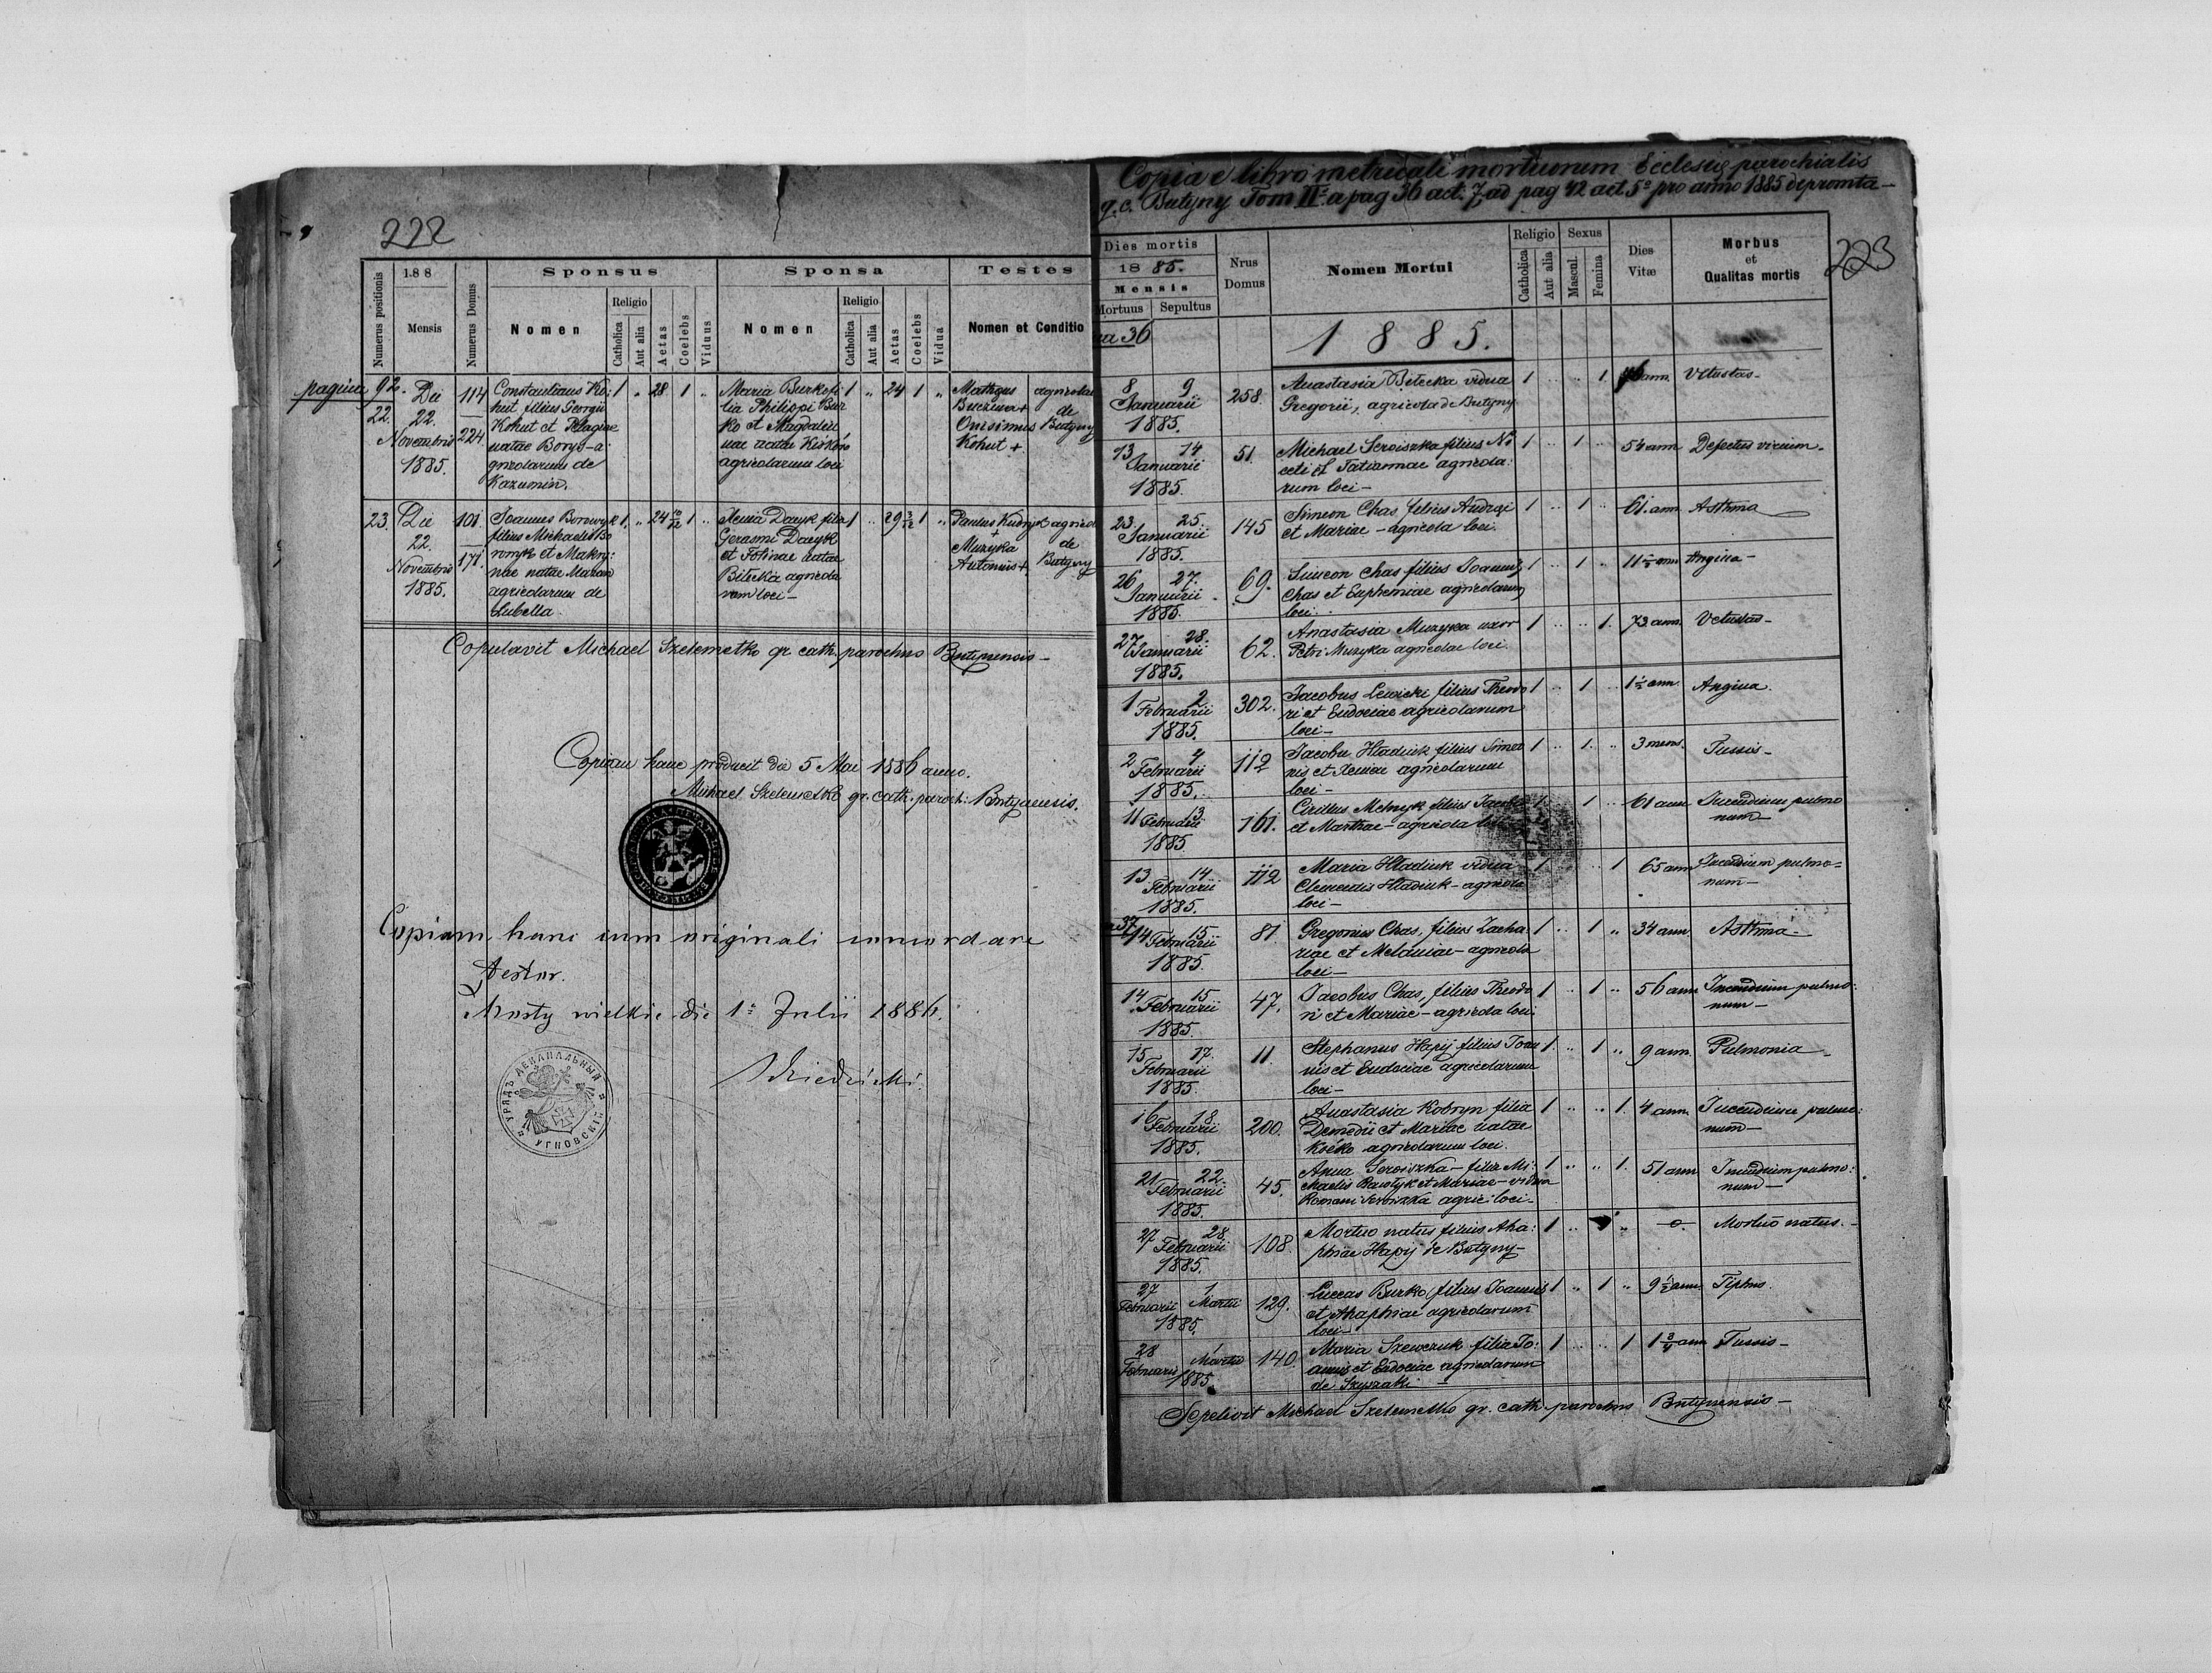 222
Numerus positionis
188
Mensis
Numerus Domus
Sponsus
Nomen
Religio
Catholica
Aut alia
Aetas
Coelebs
Viduus
Sponsa
Nomen
Religio
Catholica
Aut alia
Aetas
Coelebs
Vidua
Testes
Nomen et Conditio
pagina 92.
22.
Die
22.
Novembris
1885.
114
224
Constantinus Ko:
hut filius Georgii
Kohut et Pelagiae
natae Borys - a:
gricolarum de
Kazumin.
1 " 28 1 "
Maria Burko fi
lia Philippi Bur
ko et Magdale
nae natae
agricolarum loci
1 " 24 1 "
Matheus
+
Onisimus
Kohut +
agricolae
de
Butyny
23.
Die
22.
Novembris
1885.
101
171.
Joannes Borowyk
filius Michaelis Bo
rowyk et Makry:
nae natae Mazan
agricolarum de
Lubella
1 " 24 10/12 1 "
Xenia Dacyk filia
Gerasmi Dacyk
et Fotinae natae
Bilecka agricola
rum loci -
1 " 29 3/12 1 "
Paulus Kudryk
+
Muzyka
Antonius +
agricol
de
Butyny
Copulavit Michael Szelemetko gr. cath. parochus Butynensis -
Copiam hanc producit die 5 Mai 1886 anno.
Michael Szelemetko gr. cath. paroch: Butynensis.
Copiam hanc cum originali concordare
testor.
Mosty wielkie die 1º Julii 1886.
УРЯДЪ ДЕКАНАЛЬНЫЙ
УГНОВСКІЙ
Copia e libro metricali mortuorum Ecclesię parochialis
g. c. Butyny Tom IIº a pag 36 act. 7, ad pag 42 act. 5º pro anno 1885 depromta -
223
Dies mortis
1885.
Mensis
Mortuus
Sepultus
Nrus
Domus
Nomen Mortui
Religio
Catholica
Aut alia
Sexus
Mascul.
Femina
Dies
Vitæ
Morbus
et
Qualitas mortis
36
1885.
8 9
Januarii
1885.
258.
Anastasia Bilecka vidua
Gregorii, agricola de Butyny
1 .. .. 1
ann. Vetustas -
13 14
Januarii
1885.
51.
Michael Seroiszka filius Ni
ceti et Tatiannae agricola:
rum loci -
1 .. 1 ..
54 ann Defectus virium.
23. 25.
Januarii
1885.
145
Simeon Chas, filius Andreę
et Mariae - agricola loci.
1 .. 1 ..
61. ann Asthma
26 27.
Januarii
1885.
69.
Simeon Chas filius Joannis
Chas et Euphemiae agricolarum
loci.
1 .. 1 ..
11 1/2 ann Angina -
27 28.
Januarii
1885.
62.
Anastasia Muzyka uxor
Petri Muzyka agricolae loci.
1 .. .. 1.
73 ann. Vetustas -
1 2
Februarii
1885.
302.
Jacobus Lewicki filius Theodo
ri et Eudociae agricolarum
loci -
1 .. 1 ..
1 1/2 ann. Angina.
2 4
Februarii
1885.
112
Jacobu Hladiuk filius Simeo
nis et Xeniae agricolarum
loci -
1 .. 1. ..
3 mens. Tussis -
11 13
Februarii
1885
161.
Cirillus Melnyk filius Jacobi
et Marthae - agricola
1. 1 ..
61 ann Incendium pulmo
num -
13 14
Februarii
1885.
112
Maria Hladiuk vidua
Clementis Hladiuk - agricola
loci -
1 .. 1
65 ann Incendium pulmo=
num -
37
14 15
Februarii
1885.
81.
Gregorius Chas, filius Zacha
riae et Melaniae - agricola
loci -
1 .. 1 "
34 ann. Asthma -
14 15
Februarii
1885.
47.
Jacobus Chas, filius Theodo
ri et Mariae - agricola loci.
1 .. 1 "
56 ann Incendium pulmo:
num -
15 17.
Februarii
1885.
11.
Stephanus Hapij filius Joan
nis et Eudociae agricolarum
loci -
1. .. 1 "
9 ann. Pulmonia -
16 18.
Februarii
1885.
200.
Anastasia Kobryn filia
Demedii et Mariae natae
agricolarum loci.
1 .. .. 1.
4 ann. Incendium pulmo:
num -
21 22.
Februarii
1885.
45.
Anna Seroiszka - filia Mi:
chaelis et Mariae - vidua
Romani Seroiszka agric: loci -
1 .. .. 1.
51 ann Incendium pulmo:
num -
27 28.
Februarii
1885.
108.
Mortuo natus filius Aha:
phiae Hapij de Butyny -
1 ..
0. Mortuo natus. -
27 1
Februarii Martii
1885.
129.
Luccas Burko, filius Joannis
et Ahaphiae agricolarum
loci -
1 " 1 "
9 1/2 ann Tiphus.
28 1
Februarii Martii
1885.
140.
Maria Szewczuk filia Jo:
annis et Eudociae agricolarum
de Szyszaki -
1 .. .. 1
1 3/4 ann Tussis -
Sepelivit Michael Szelemetko gr. cath parochus Butynensis -